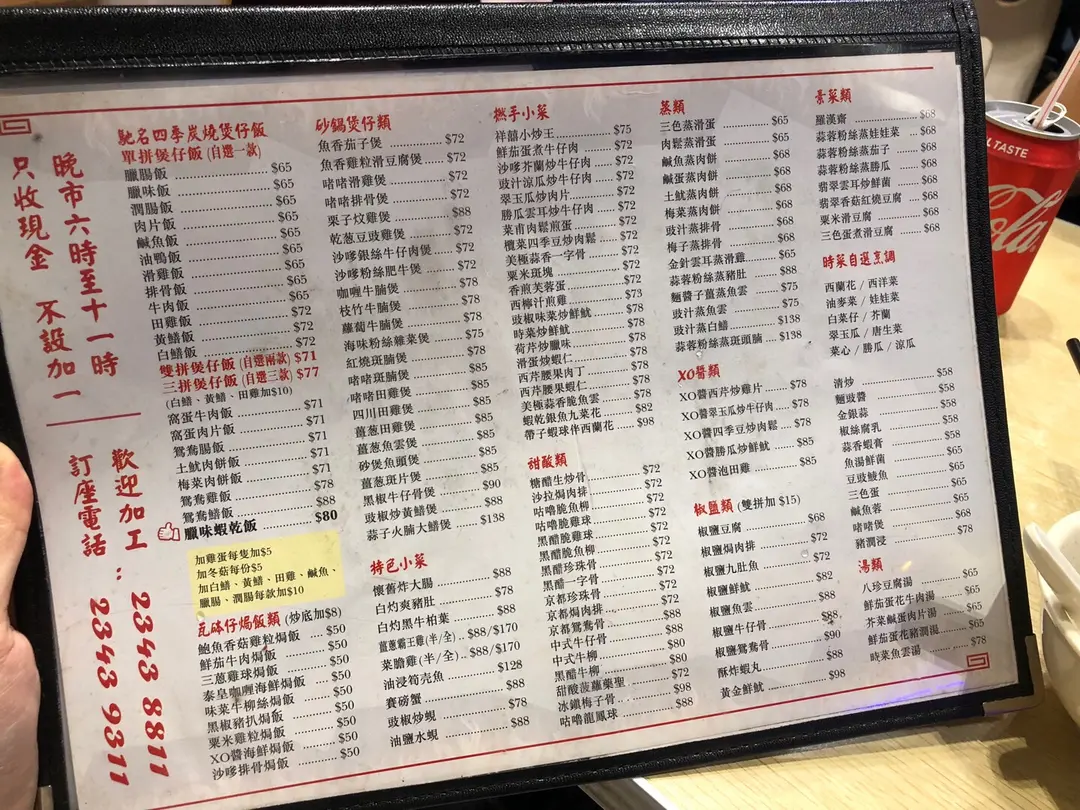 晚市六時至十一時
只收現金 不設加一
歡迎加工
訂座電話：
2343 8811
2343 9311
馳名四季炭燒煲仔飯
單拼煲仔飯 (自選一款)
臘腸飯 $65
臘味飯 $65
潤腸飯 $65
肉片飯 $65
鹹魚飯 $65
油鴨飯 $65
滑雞飯 $65
排骨飯 $65
牛肉飯 $65
田雞飯 $72
黃鱔飯 $72
白鱔飯 $72
雙拼煲仔飯 (自選兩款) $71
三拼煲仔飯 (自選三款) $77
(白鱔、黃鱔、田雞加$10)
窩蛋牛肉飯 $71
窩蛋肉片飯 $71
鴛鴦腸飯 $71
土魷肉餅飯 $71
梅菜肉餅飯 $71
鴛鴦雞飯 $78
鴛鴦鱔飯 $88
臘味蝦乾飯 $80
加雞蛋每隻加$5
加冬菇每份$5
加白鱔、黃鱔、田雞、鹹魚、
臘腸、潤腸每款加$10
瓦砵仔焗飯類 (炒底加$8)
鮑魚香菇雞粒焗飯 $50
鮮茄牛肉焗飯 $50
三蔥雞球焗飯 $50
泰皇咖喱海鮮焗飯 $50
味菜牛柳絲焗飯 $50
黑椒豬扒焗飯 $50
粟米雞粒焗飯 $50
XO醬海鮮焗飯 $50
沙嗲排骨焗飯 $50
砂鍋煲仔類
魚香茄子煲 $72
魚香雞粒滑豆腐煲 $72
啫啫滑雞煲 $72
啫啫排骨煲 $72
栗子炆雞煲 $88
乾葱豆豉雞煲 $72
沙嗲銀絲牛仔肉煲 $72
沙嗲粉絲肥牛煲 $72
咖喱牛腩煲 $78
枝竹牛腩煲 $78
蘿蔔牛腩煲 $78
海味粉絲雜菜煲 $75
紅燒斑腩煲 $78
啫啫斑腩煲 $78
啫啫田雞煲 $85
四川田雞煲 $85
薑葱田雞煲 $85
薑葱魚雲煲 $85
砂煲魚頭煲 $85
薑葱斑片煲 $85
黑椒牛仔骨煲 $90
豉椒炒黃鱔煲 $88
蒜子火腩大鱔煲 $138
特色小菜
懷舊炸大腸 $88
白灼爽豬肚 $78
白灼黑牛柏葉 $88
薑蔥霸王雞(半/全) $88/$170
菜膽雞(半/全) $88/$170
油浸筍壳魚 $128
賽磅蟹 $88
豉椒炒蜆 $78
油鹽水蜆 $88
撚手小菜
祥囍小炒王 $75
鮮茄蛋煮牛仔肉 $72
沙嗲芥蘭炒牛仔肉 $72
豉汁涼瓜炒牛仔肉 $72
翠玉瓜炒肉片 $72
勝瓜雲耳炒牛仔肉 $72
菜甫肉鬆煎蛋 $72
欖菜四季豆炒肉鬆 $72
美極蒜香一字骨 $72
粟米斑塊 $72
香煎芙蓉蛋 $72
西檸汁煎雞 $73
豉椒味菜炒鮮魷 $78
時菜炒鮮魷 $78
荷芹炒臘味 $78
滑蛋炒蝦仁 $78
西芹腰果肉丁 $78
西芹腰果蝦仁 $78
美極蒜香脆魚雲 $78
蝦乾銀魚九菜花 $82
帶子蝦球伴西蘭花 $98
甜酸類
糖醋生炒骨 $72
沙拉焗肉排 $72
咕嚕脆魚柳 $72
咕嚕脆雞球 $72
黑醋脆雞球 $72
黑醋脆魚柳 $72
黑醋珍珠骨 $72
黑醋一字骨 $72
京都珍珠骨 $72
京都焗肉排 $72
京都鴛鴦骨 $72
中式牛仔骨 $88
中式牛柳 $80
黑醋牛柳 $80
甜酸菠蘿藥聖 $80
冰鎮梅子骨 $98
咕嚕龍鳳球 $88
蒸類
三色蒸滑蛋 $65
肉鬆蒸滑蛋 $65
鹹魚蒸肉餅 $68
鹹蛋蒸肉餅 $68
土魷蒸肉餅 $68
梅菜蒸肉餅 $68
豉汁蒸排骨 $68
梅子蒸排骨 $68
金針雲耳蒸滑雞 $65
蒜蓉粉絲蒸豬肚 $88
麵醬子薑蒸魚雲 $75
豉汁蒸魚雲 $75
豉汁蒸白鱔 $138
蒜蓉粉絲蒸斑頭腩 $138
XO醬類
XO醬西芹炒雞片 $78
XO醬翠玉瓜炒牛仔肉 $78
XO醬四季豆炒肉鬆 $78
XO醬勝瓜炒鮮魷 $85
XO醬泡田雞 $85
椒鹽類 (雙拼加 $15)
椒鹽豆腐 $68
椒鹽焗肉排 $72
椒鹽九肚魚 $72
椒鹽鮮魷 $82
椒鹽魚雲 $88
椒鹽牛仔骨 $88
椒鹽鴛鴦骨 $90
酥炸蝦丸 $88
黃金鮮魷 $98
素菜類
羅漢齋 $68
蒜蓉粉絲蒸娃娃菜 $68
蒜蓉粉絲蒸茄子 $68
蒜蓉粉絲蒸勝瓜 $68
翡翠雲耳炒鮮菌 $68
翡翠香菇紅燒豆腐 $68
粟米滑豆腐 $68
三色蛋煮滑豆腐 $68
時菜自選烹調
西蘭花 / 西洋菜
油麥菜 / 娃娃菜
白菜仔 / 芥蘭
翠玉瓜 / 唐生菜
菜心 / 勝瓜 / 涼瓜
清炒 $58
麵豉醬 $58
金銀蒜 $58
椒絲腐乳 $58
蒜香蝦膏 $58
魚湯鮮菌 $68
豆豉鯪魚 $58
三色蛋 $65
鹹魚蓉 $65
啫啫煲 $68
豬潤浸 $78
湯類
八珍豆腐湯 $65
鮮茄蛋花牛肉湯 $65
芥菜鹹蛋肉片湯 $65
鮮茄蛋花豬潤湯 $65
時菜魚雲湯 $78
TASTE
Cola